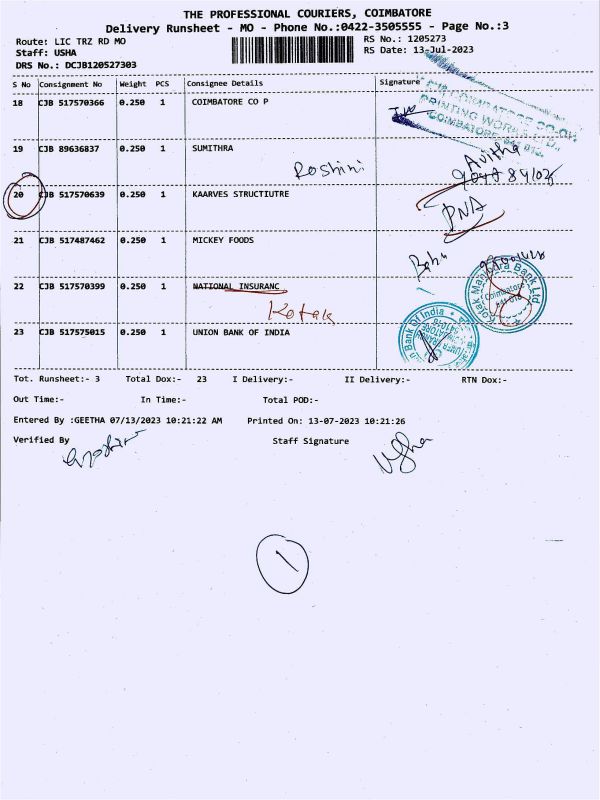 THE PROFESSIONAL COURIERS, COIMBATORE
Delivery Runsheet - MO - Phone No.:0422-3505555 - Page No.:3
Route: LIC TRZ RD MO RS No.: 1205273
Staff: USHA RS Date: 13-Jul-2023
DRS No.: DCJB120527303
S No Consignment No Weight PCS Consignee Details Signature
18 CJB 517570366 0.250 1 COIMBATORE CO P
PRINTING WORKS LTD.
COIMBATORE
19 CJB 89636837 0.250 1 SUMITHRA
Roshini
20 CJB 517570639 0.250 1 KAARVES STRUCTIUTRE
PNA
21 CJB 517487462 0.250 1 MICKEY FOODS
Babu
22 CJB 517570399 0.250 1 NATIONAL INSURANC
Kotak
Kotak Mahindra Bank Ltd
Coimbatore
23 CJB 517575015 0.250 1 UNION BANK OF INDIA
Bank of India
Tot. Runsheet:- 3 Total Dox:- 23 I Delivery:- II Delivery:- RTN Dox:-
Out Time:- In Time:- Total POD:-
Entered By :GEETHA 07/13/2023 10:21:22 AM Printed On: 13-07-2023 10:21:26
Verified By Staff Signature
Usha
1